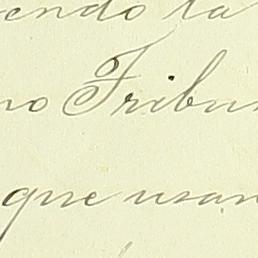 endo la
no Tribu
que usan